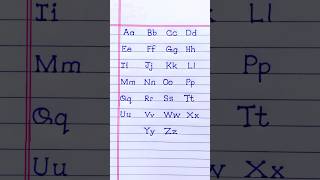 Aa Bb Cc Dd
Ee Ff Gg Hh
Ii Jj Kk Ll
Mm Nn Oo Pp
Qq Rr Ss Tt
Uu Vv Ww Xx
Yy Zz
Ii Ll
Mm Pp
Qq Tt
Uu Xx